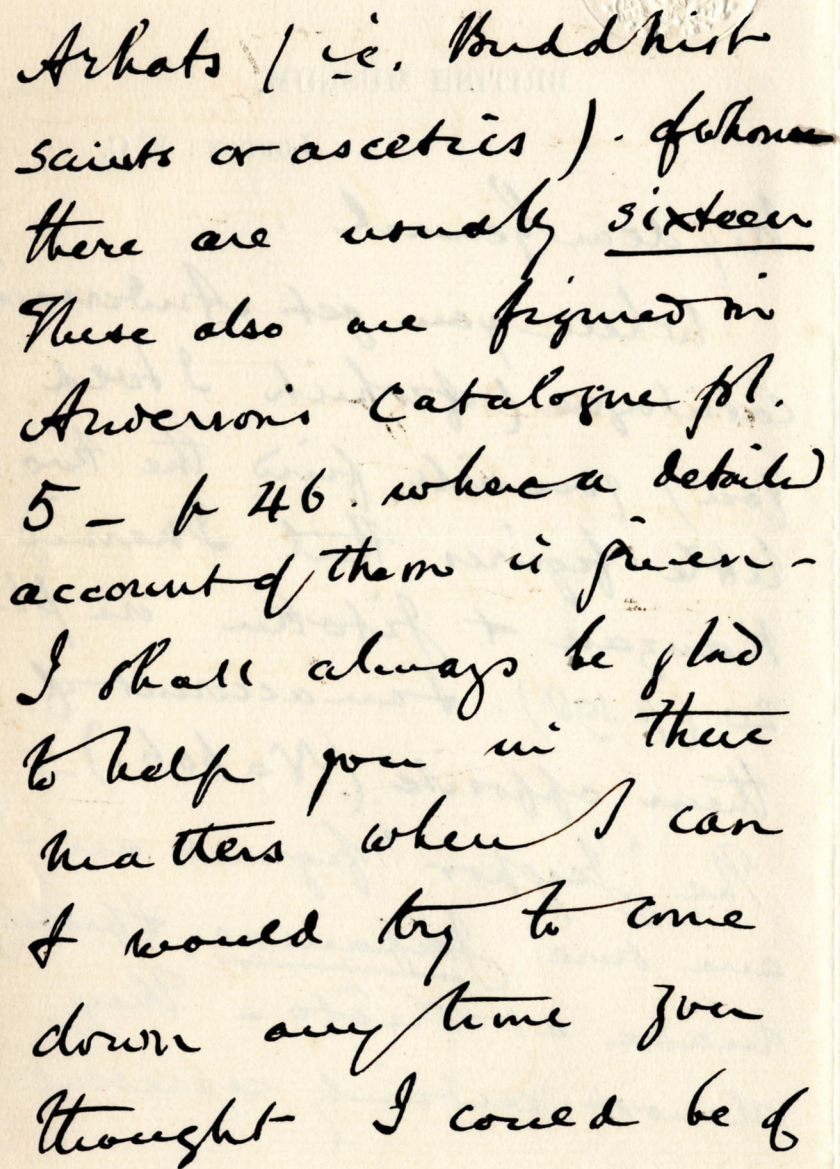 Arhats (i.e. Buddhist
saints or ascetics). of whom
there are usually sixteen
These also are figured in
Anderson's Catalogue pl.
5 - p 46. where a detailed
account of them is given -
I shall always be glad
to help you in these
matters when I can
I would try to come
down any time you
thought I could be of